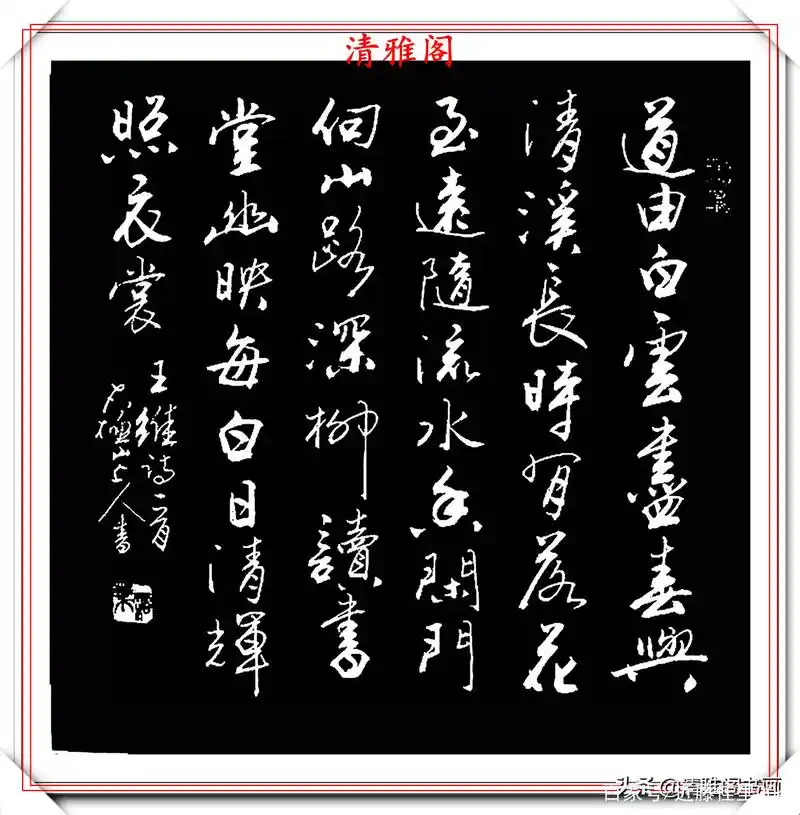 清雅阁
道由白雲盡春與
清溪長時有落花
至遠隨流水香閑門
向山路深柳讀書
堂幽映每白日清輝
照衣裳
王維詩一首
山上人書
头条@清雅阁书画
百家号/近藤